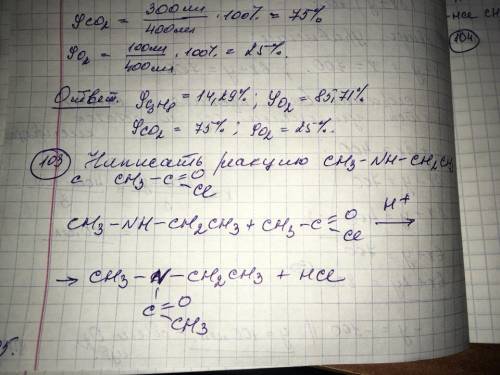 φCO2 = 300мл/400мл · 100% = 75%
φO2 = 100мл/400мл · 100% = 25%.
Ответ. φC3H8 = 14,29%; φO2 = 85,71%
φCO2 = 75%; φO2 = 25%.
103 Написать реакцию CH3-NH-CH2CH3
с CH3-C=O
Cl
CH3-NH-CH2CH3 + CH3-C=O H+ →
Cl
→ CH3-N-CH2CH3 + HCl
C=O
CH3
104
CH3